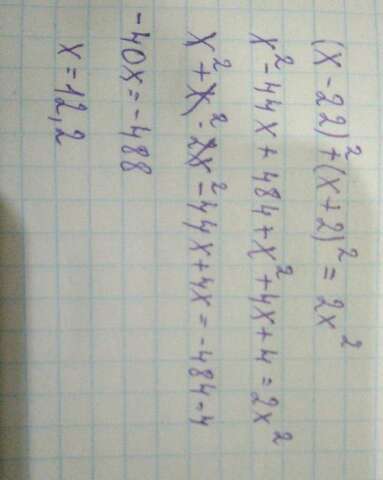 (x-22)²+(x+2)²=2x²
x²-44x+484+x²+4x+4=2x²
x²+x²-2x²-44x+4x=-484-4
-40x=-488
x=12,2